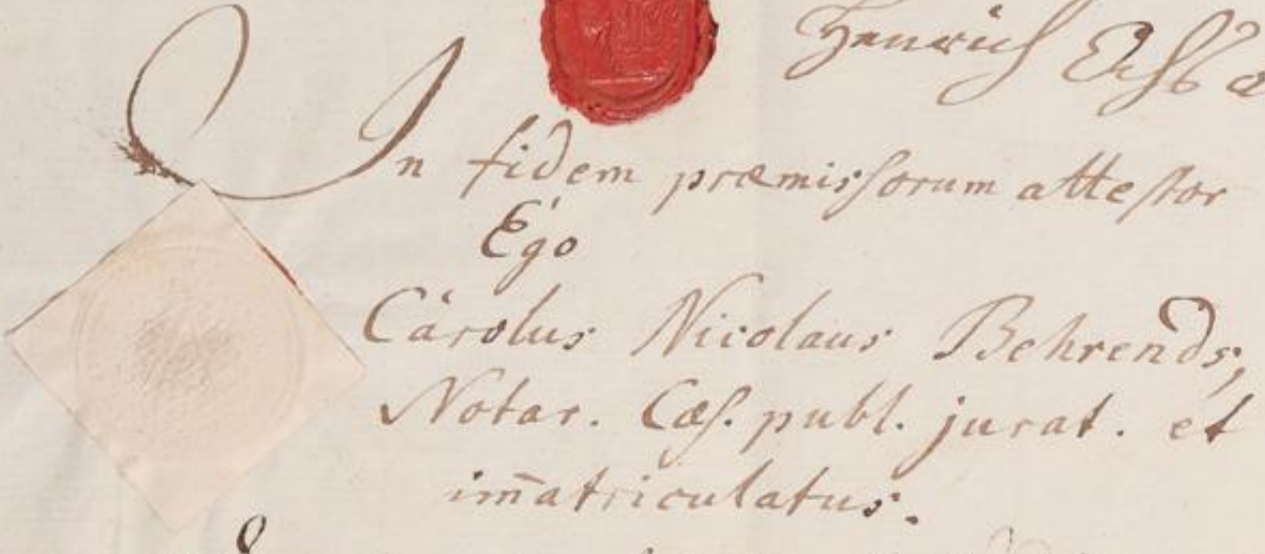 Henrich
In fidem præmissorum attestor
Ego
Carolus Nicolaus Behrends,
Notar. Cæs. publ. jurat. et
im̄atriculatus.